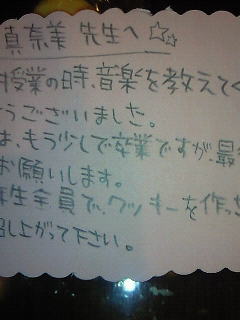 真奈美 先生へ☆☆
授業の時、音楽を教えてく
うございました。
は、もう少しで卒業ですが、最
お願いします。
年生全員で、クッキーを作っ
召し上がって下さい。